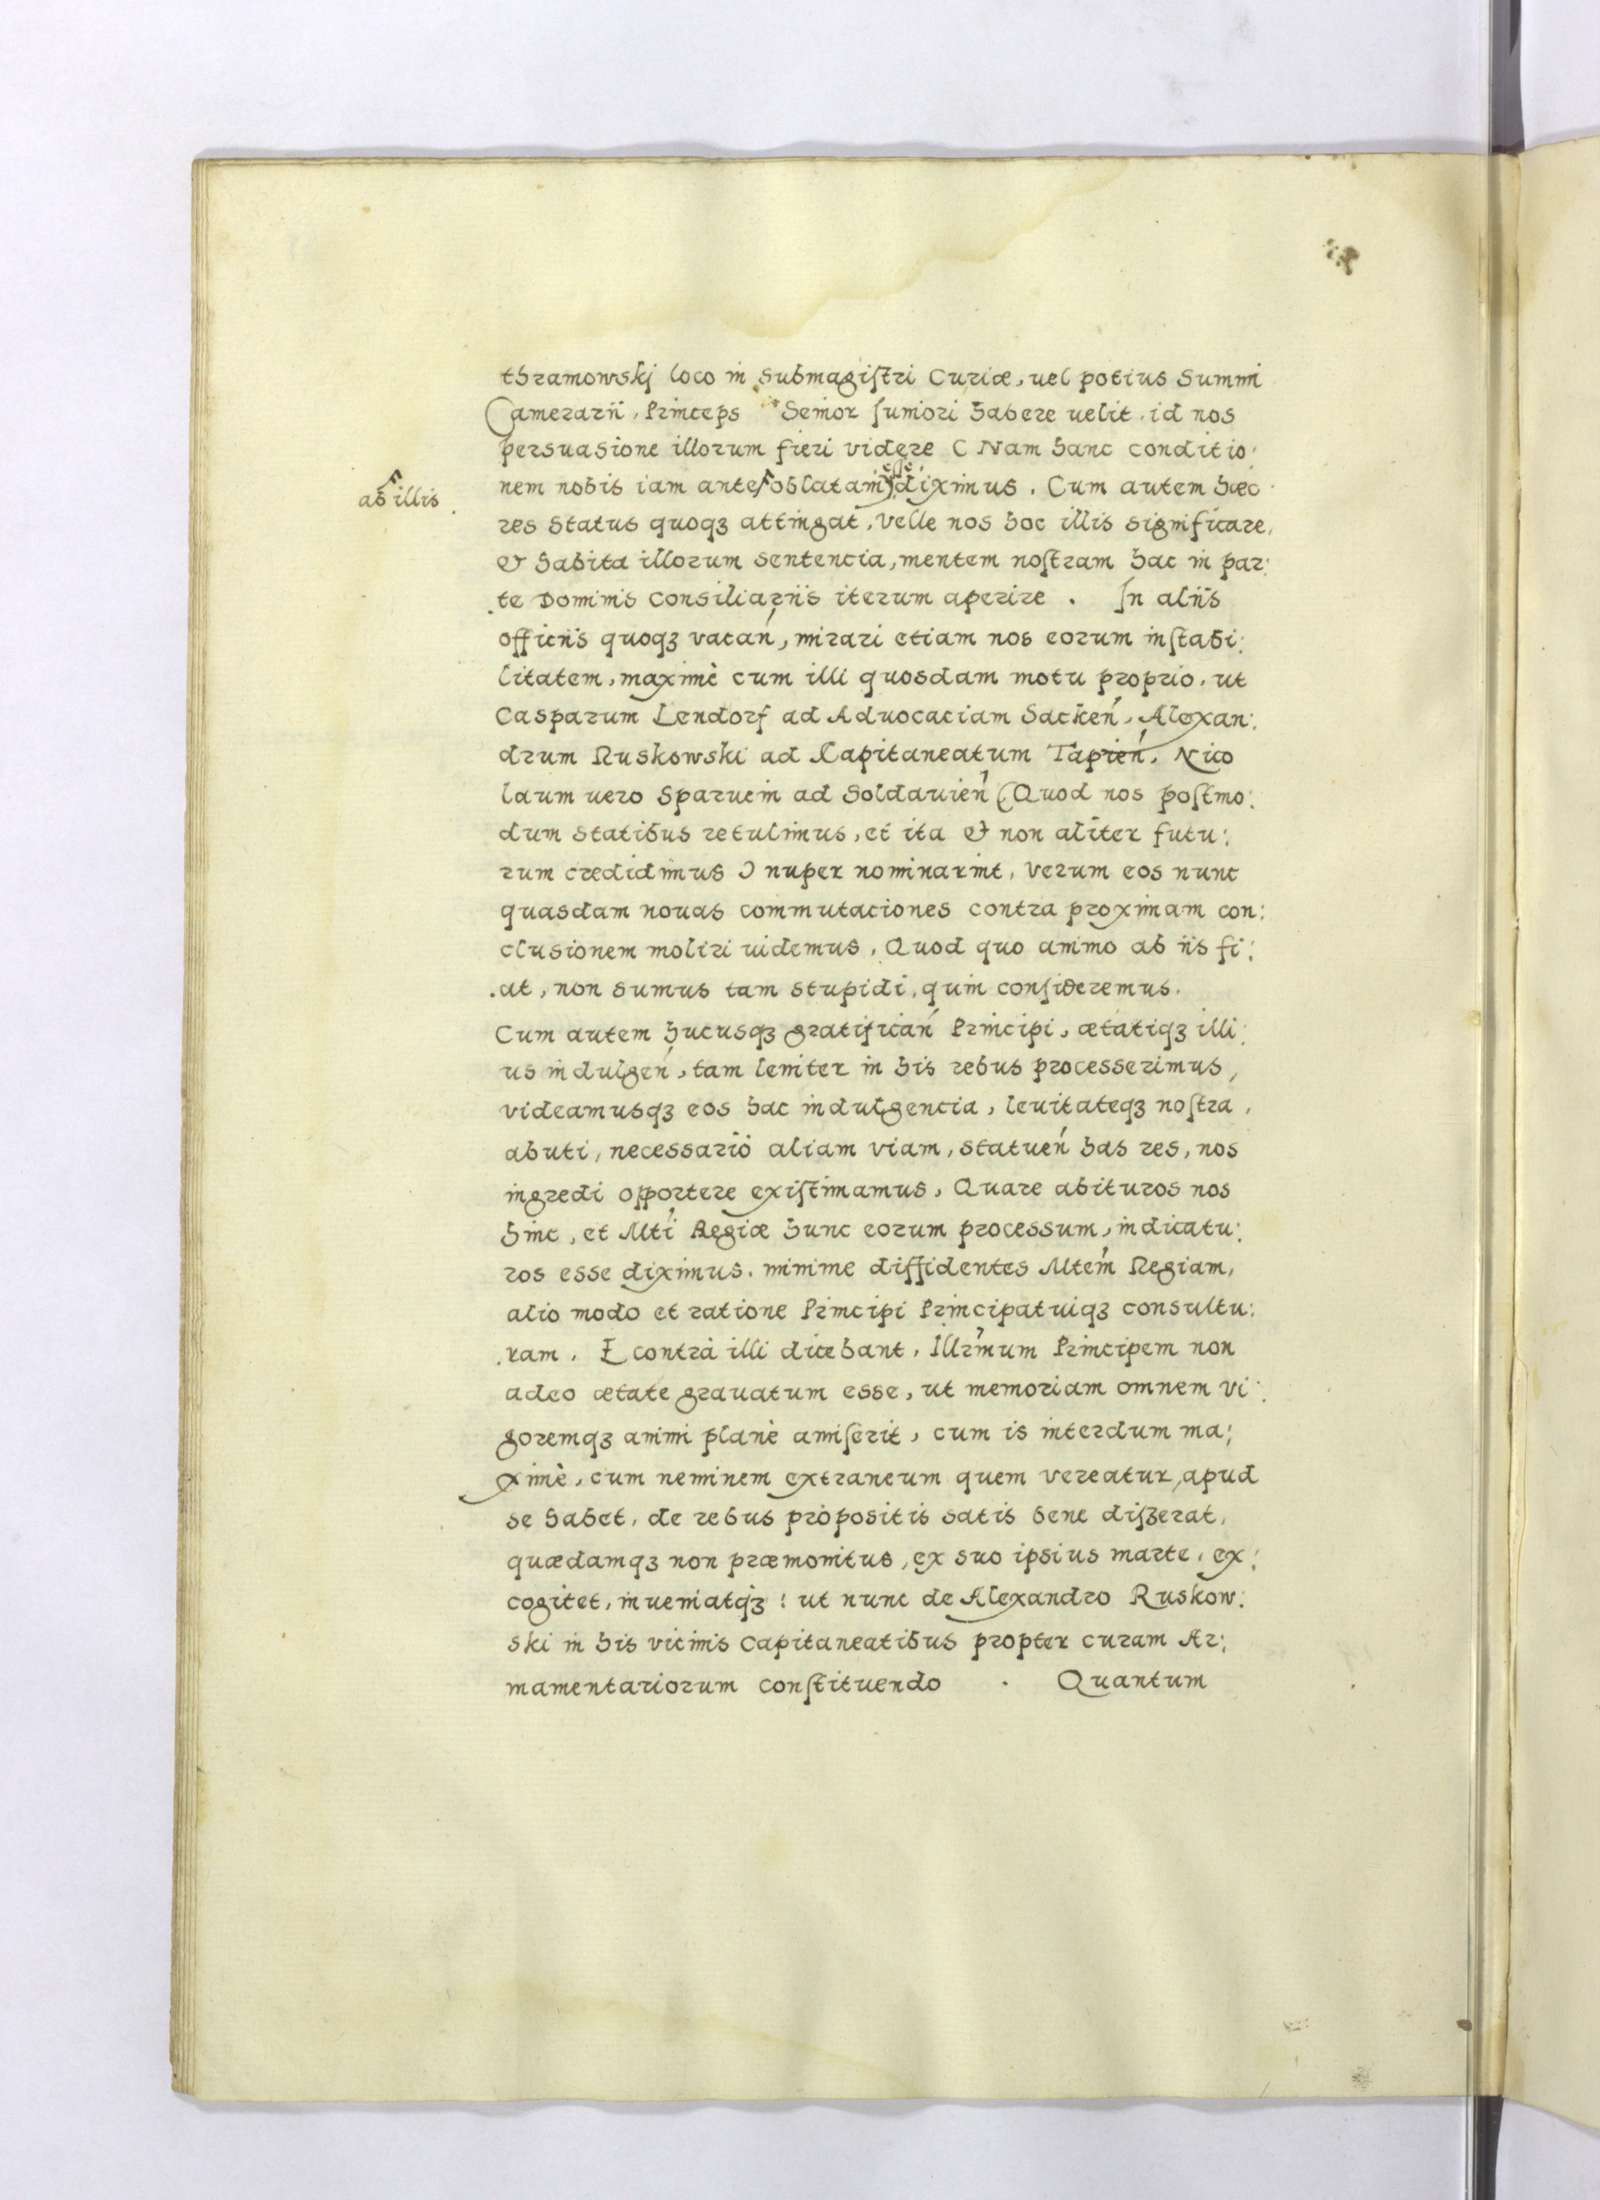 thramowskj loco in Submagistri Curiæ, uel potius Summi
Camerarii, Princeps Senior Juniori habere uelit, id nos
persuasione illorum fieri videre ( Nam hanc conditio:
ab illis
nem nobis iam ante oblatam esse) diximus. Cum autem hæc
res Status quoqꝫ attingat, velle nos hoc illis significare,
& habita illorum sentencia, mentem nostram hac in par:
te Dominis Consiliariis iterum aperire. In aliis
officiis quoqꝫ vacań, mirari etiam nos eorum instabi:
litatem, maximè cum illi quosdam motu proprio, ut
Casparum Lendorf ad Aduocaciam Sackeń, Alexan:
drum Ruskowski ad Capitaneatum Tapień, Nico
laum uero Sparuein ad Soldauień (Quod nos postmo:
dum statibus retulimus, et ita & non aliter futu:
rum credidimus ) nuper nominarint, verum eos nunc
quasdam nouas commutaciones contra proximam con:
clusionem moliri uidemus, Quod quo animo ab iis fi:
at, non sumus tam stupidi, quin consideremus.
Cum autem hucusqꝫ gratificań Principi, ætatiqꝫ illi:
us indulgeń, tam leniter in his rebus processerimus,
videamusqꝫ eos hac indulgencia, leuitateqꝫ nostra,
abuti, necessariò aliam viam, statueń has res, nos
ingredi opportere existimamus, Quare abituros nos
hinc, et Mti Regiæ hunc eorum processum, indicatu:
ros esse diximus, minime diffidentes Mtem Regiam,
alio modo et ratione Principi Principatuiqꝫ consultu:
ram. E contrà illi dicebant, Illrmum Principem non
adeo ætate grauatum esse, ut memoriam omnem vi:
goremqꝫ animi planè amiserit, cum is interdum ma:
ximè, cum neminem extraneum quem vereatur, apud
se habet, de rebus propositis satis bene disserat,
quædamqꝫ non præmonitus, ex suo ipsius marte, ex:
cogitet, inueniatqꝫ: ut nunc de Alexandro Ruskow:
ski in his vicinis Capitaneatibus propter curam Ar:
mamentariorum constituendo. Quantum